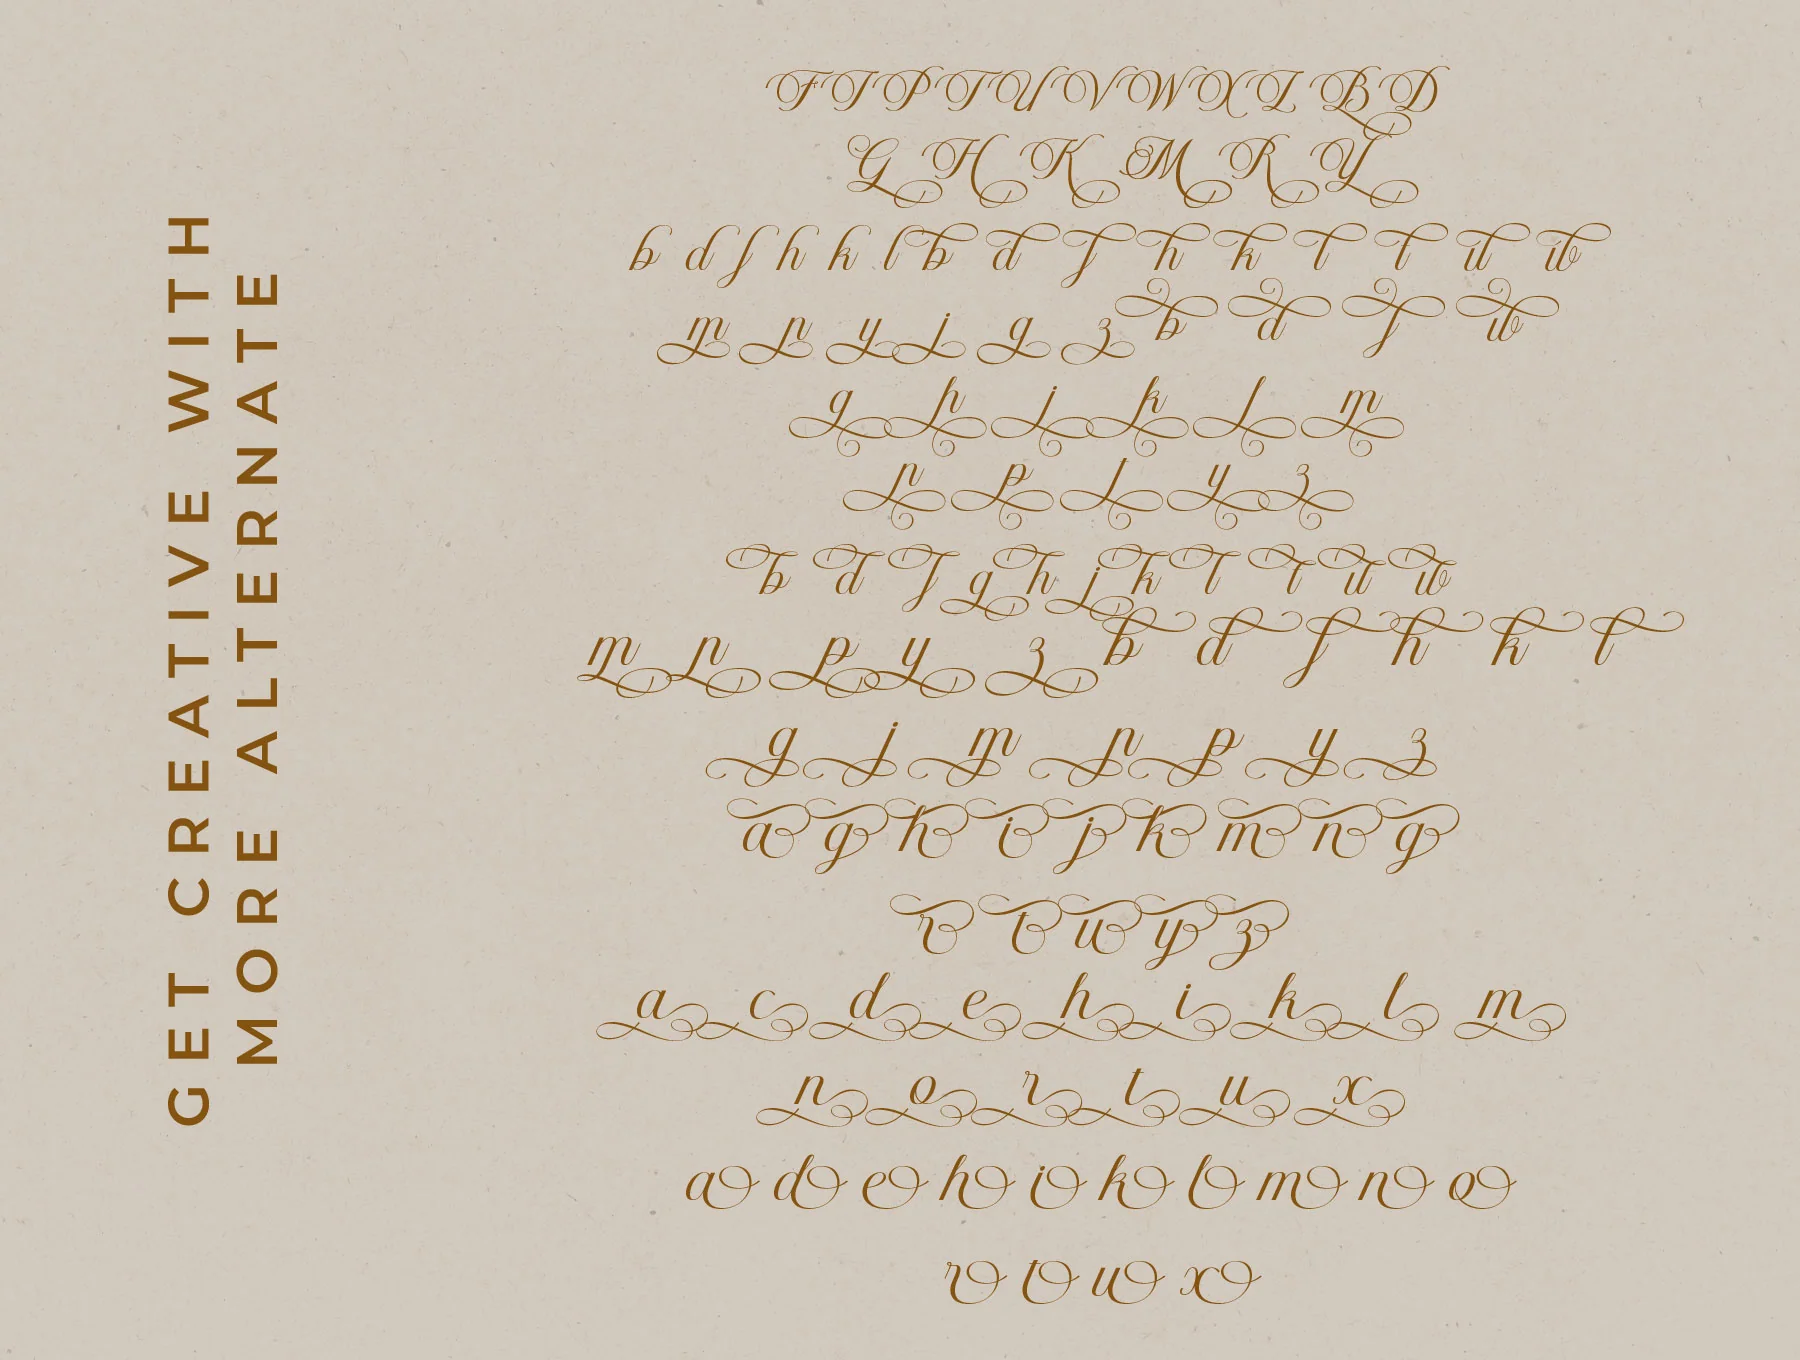 GET CREATIVE WITH
MORE ALTERNATE
F I P T U V W X Z B D
G H K M R Y
b d f h k l b d f h k l t u w
m n y j g z b d f w
g h j k l m
n p f y z
b d f g h j k l t u w
m n p y z b d f h k l
g j m n p y z
a g h i j k m n q
r t w y z
a c d e h i k l m
n o r t u x
a d e h i k l m n o
r t u x